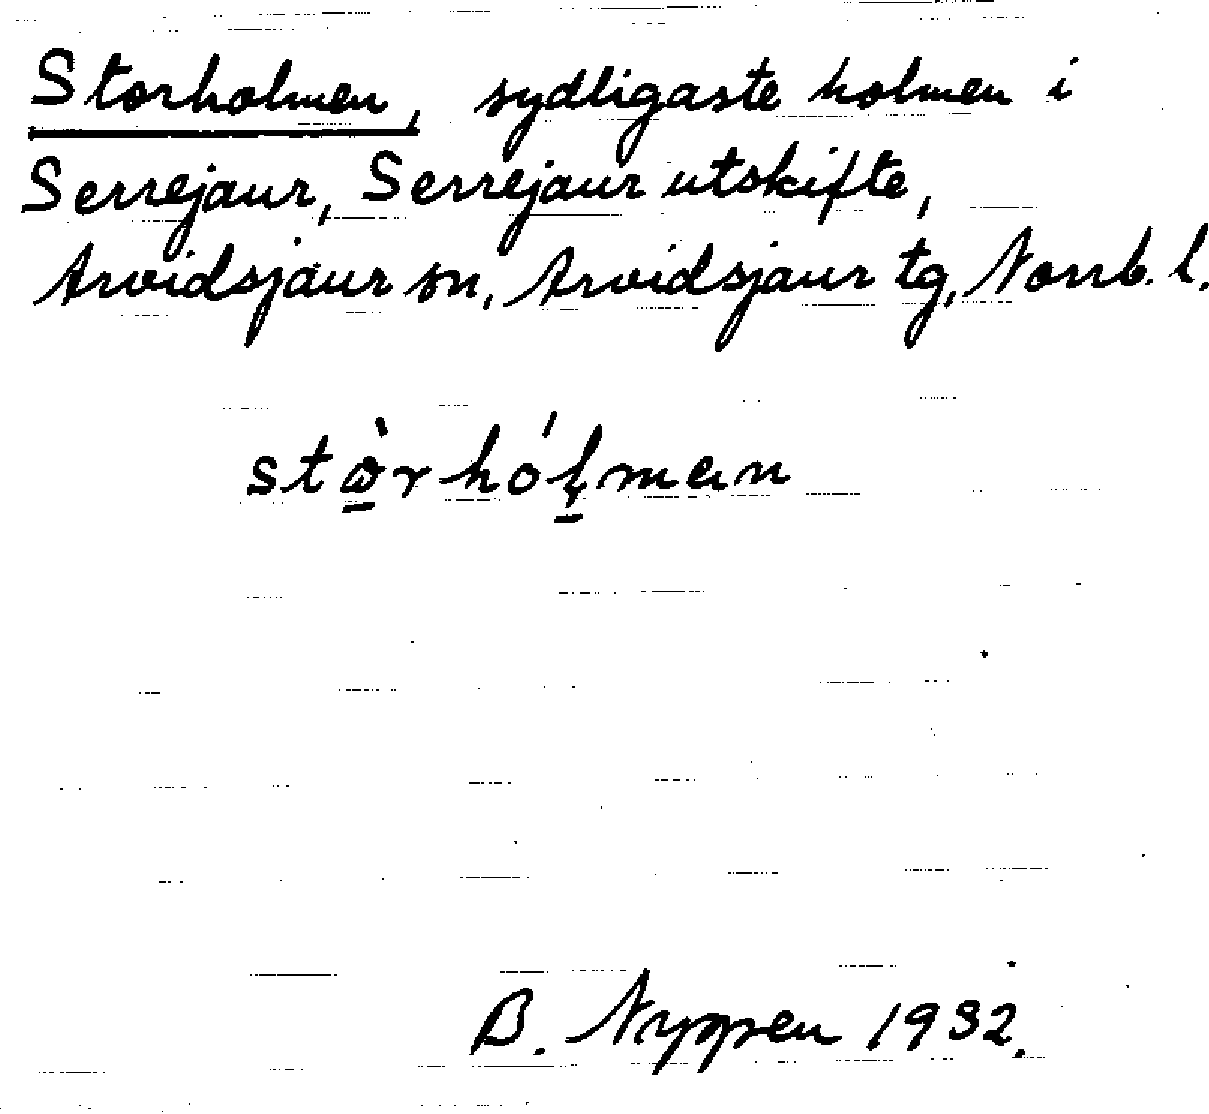 Storholmen, sydligaste holmen i
Serrejaur, Serrejaur utskifte,
Arvidsjaur sn, Arvidsjaur tg, Norrb. l.
B. Nyppen 1932.